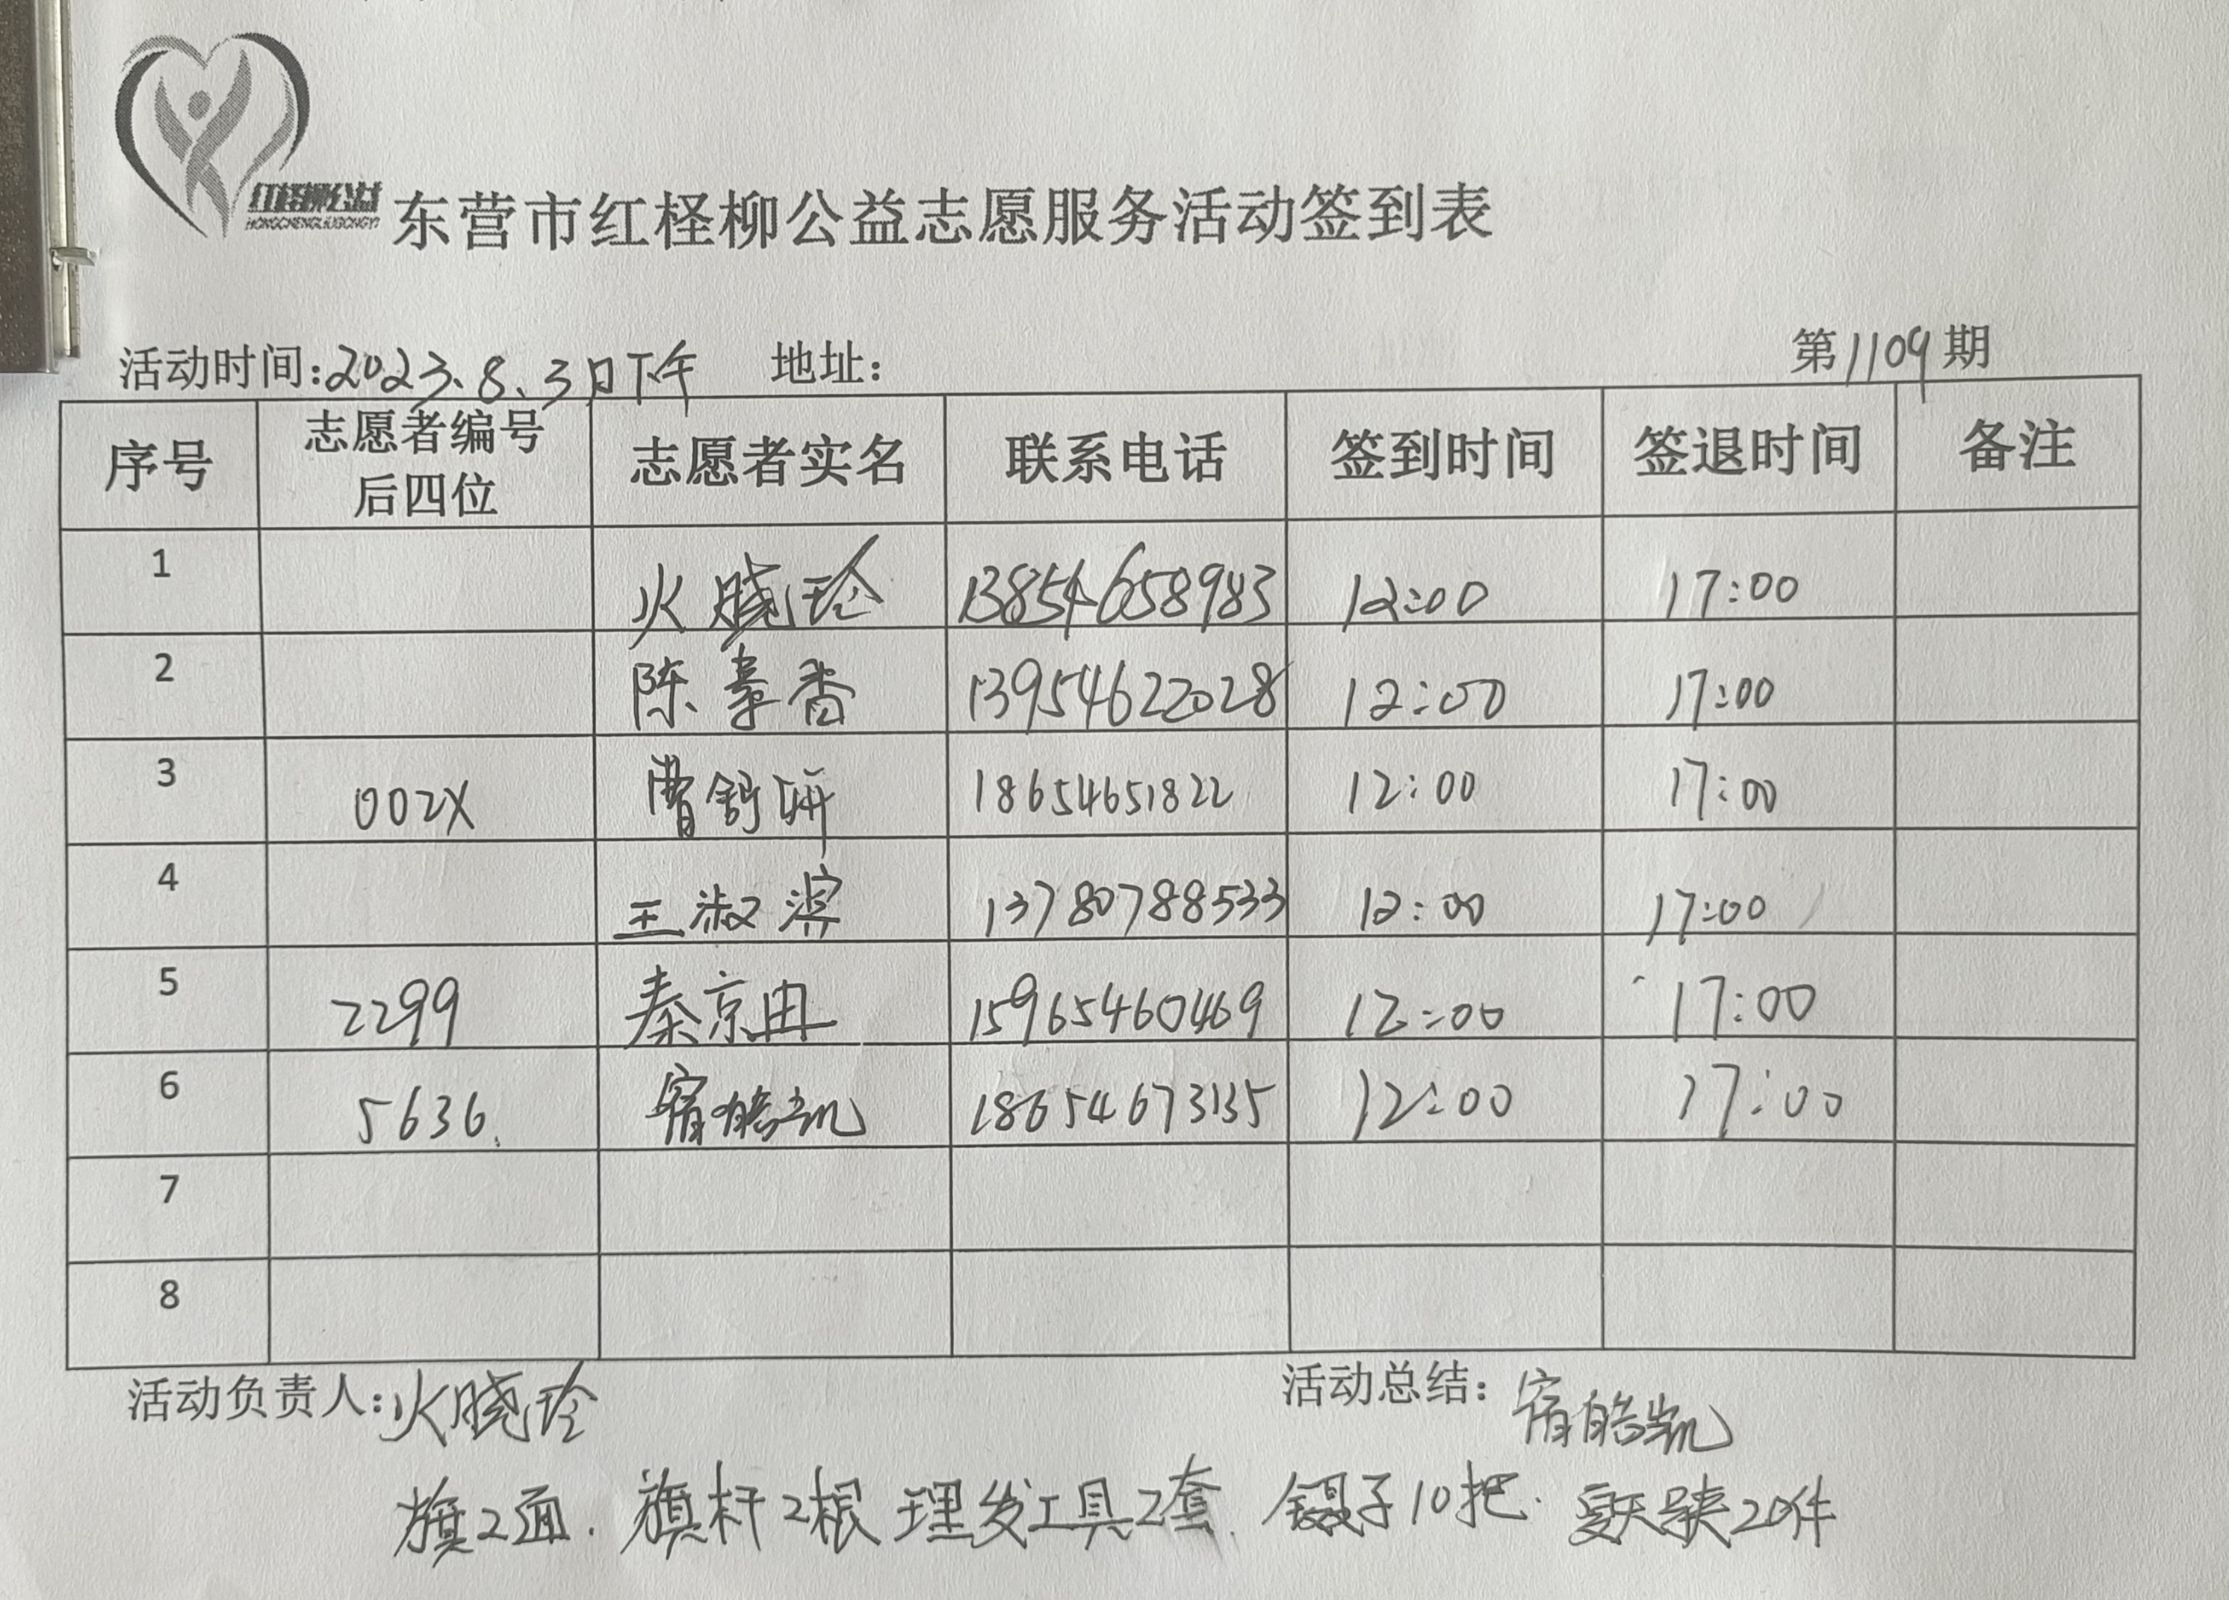 红柽柳公益
HONGCHENGLIUGONGYI
东营市红柽柳公益志愿服务活动签到表
活动时间:2023.8.3日下午 地址: 第1109期
序号 志愿者编号后四位 志愿者实名 联系电话 签到时间 签退时间 备注
1 火晓玲 13854658983 12:00 17:00
2 陈 香 13954622028 12:00 17:00
3 002X 曹舒妍 18654651822 12:00 17:00
4 王淑滨 13780788533 12:00 17:00
5 2299 秦京冉 15965460469 12:00 17:00
6 5636. 宿皓凯 18654673135 12:00 17:00
7
8
活动负责人:火晓玲 活动总结:宿皓凯
旗2面. 旗杆2根 理发工具2套. 镊子10把. 夏天 20件